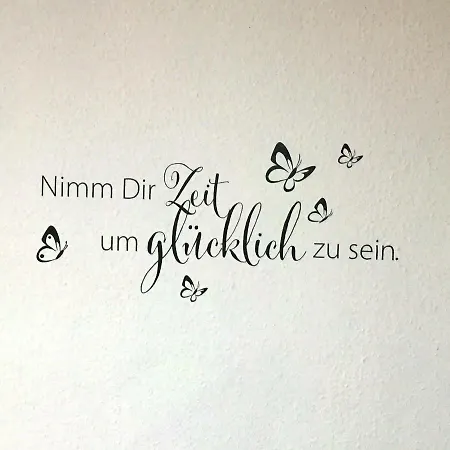 Nimm Dir Zeit
um glücklich zu sein.